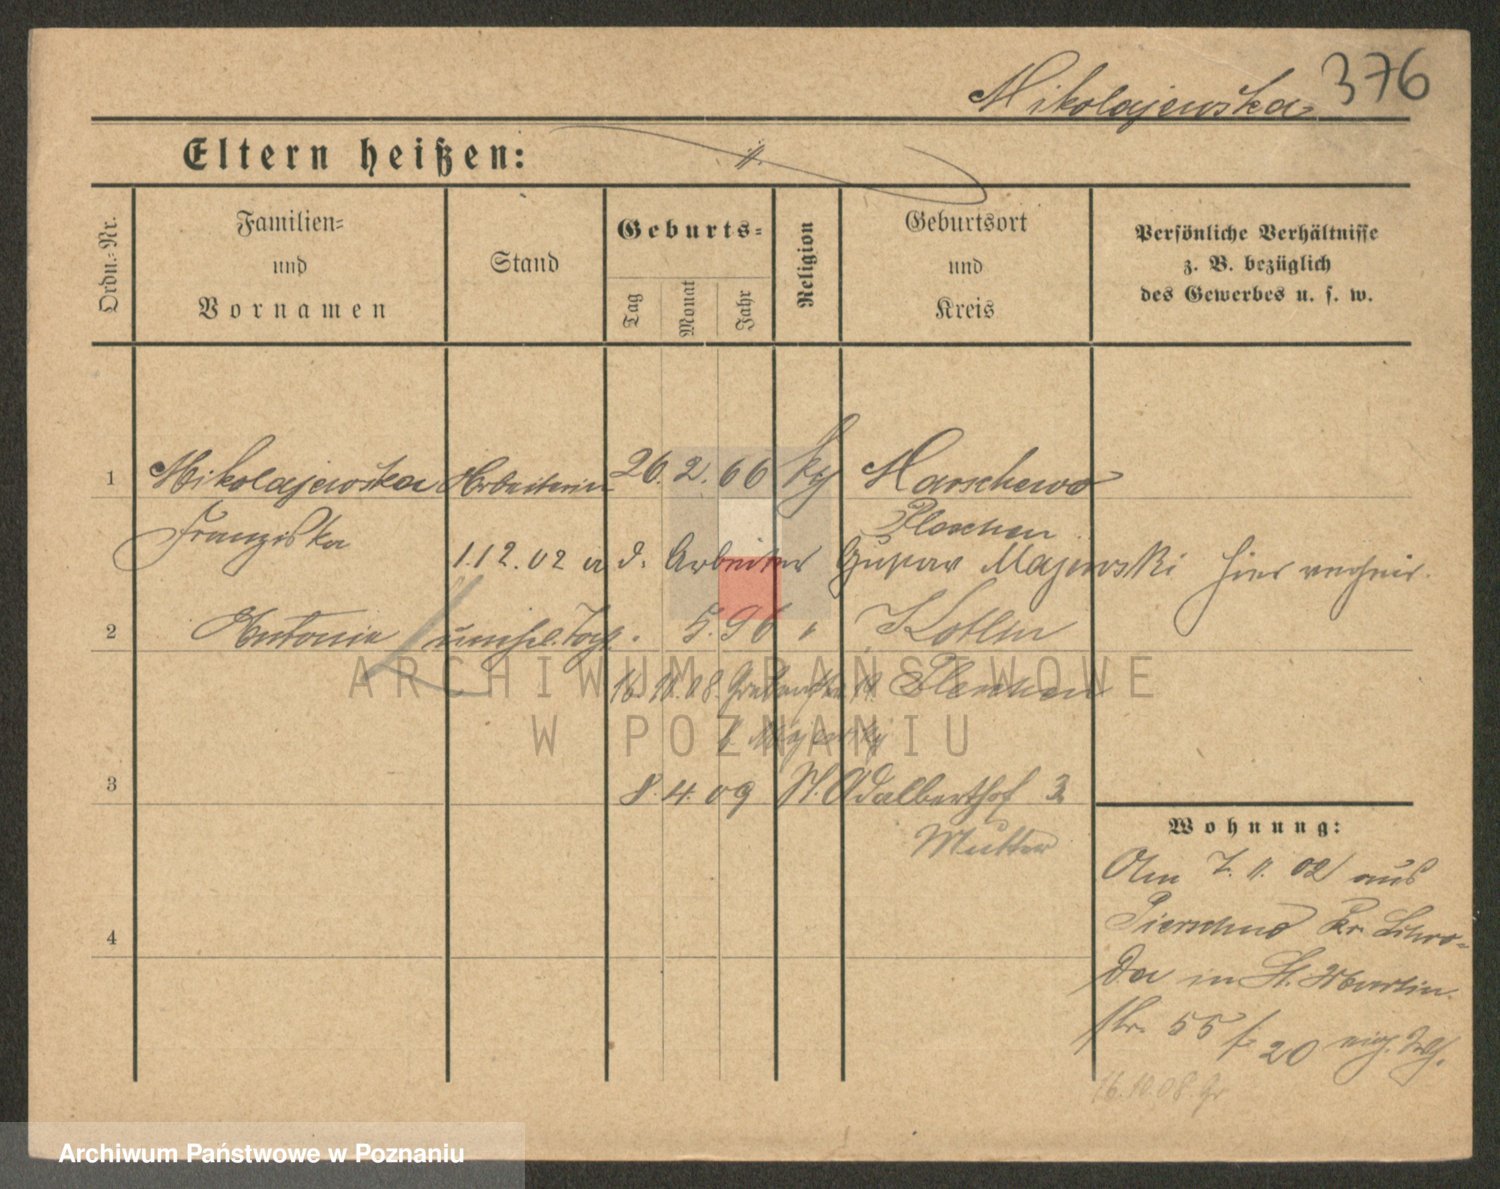 Mikolajewska 376
Eltern heißen:
Ordn.-Nr.
Familien-
und
Vornamen
Stand
Geburts-
Tag
Monat
Jahr
Religion
Geburtsort
und
Kreis
Persönliche Verhältnisse
z. B. bezüglich
des Gewerbes u. s. w.
1 Mikolajewska Arbeiterin 26. 2. 66 Marschewo
Franziska Pleschen
1.12.02 a d. Arbeiter Majewski hier verheir.
2 Antonie 5. 96 " Kotlin
16.10.08. Pleschen
8. 4. 09 St. Adalberthof 3
Mutter
3
4
Wohnung:
Am 7. 11. 02 aus
Kr. Schro-
da in St. Martin
str. 55
20
16.10.08. Gr
ARCHIWUM PAŃSTWOWE
W POZNANIU
Archiwum Państwowe w Poznaniu